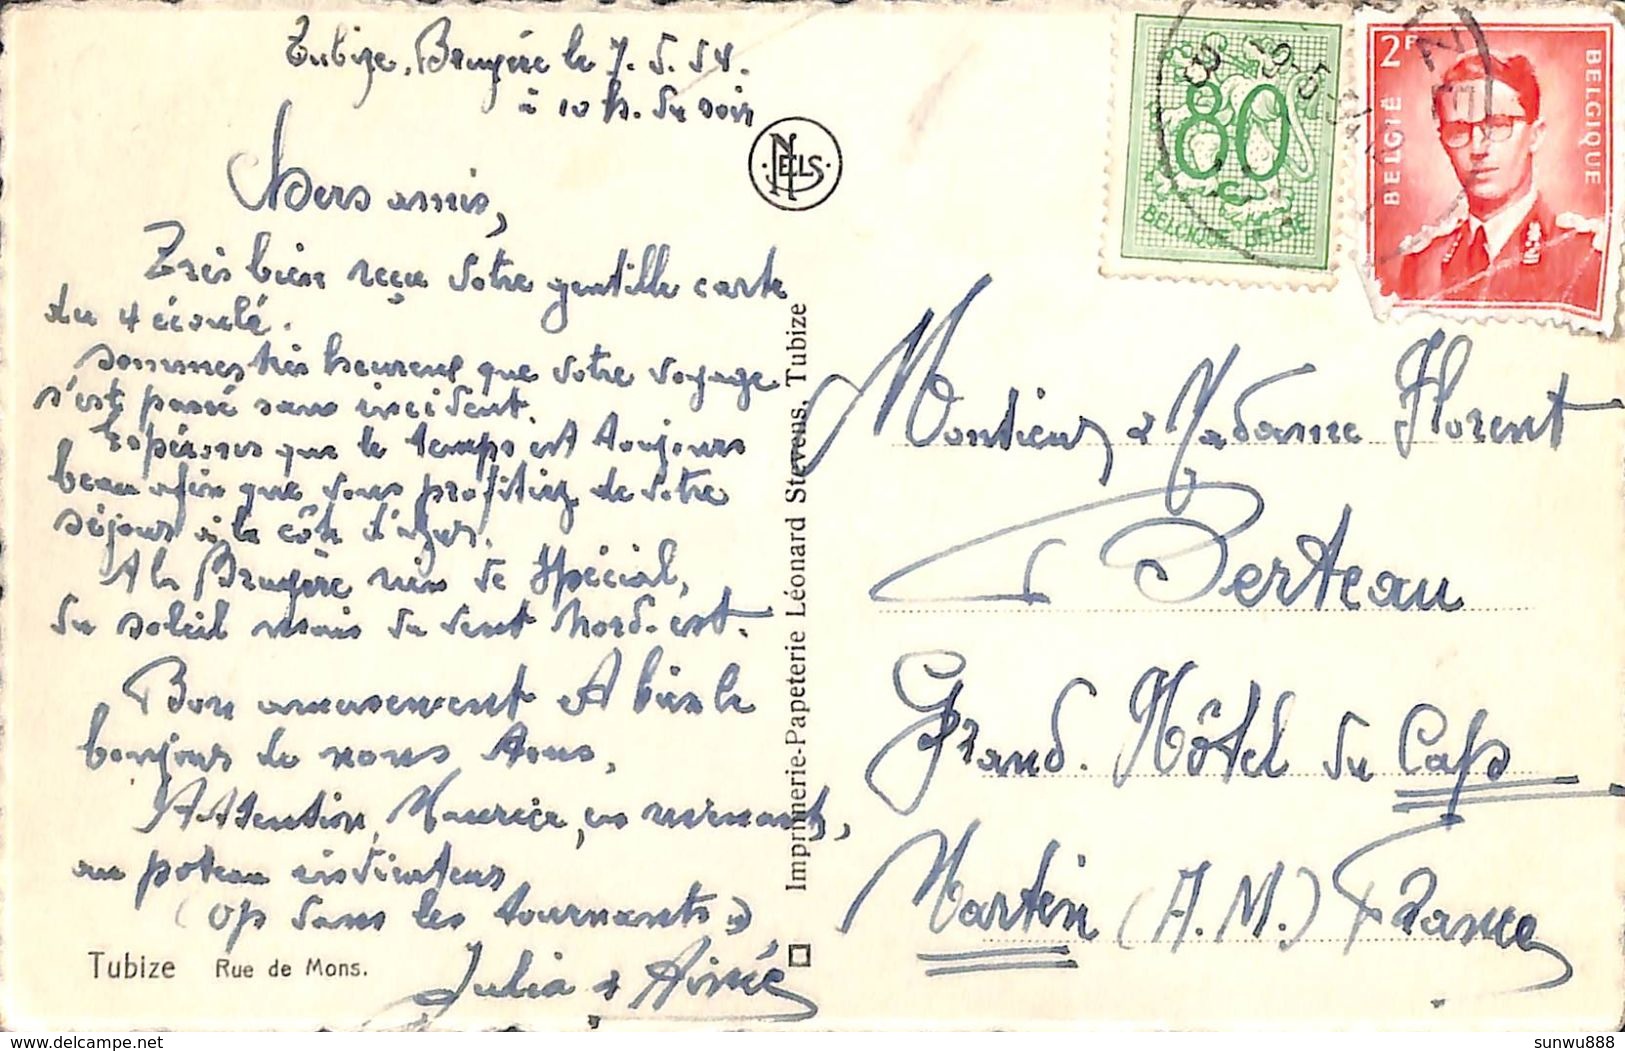 Tubize. Bruyère le 7.5.54.
à 10 h. du soir
Chers amis,
Très bien reçu votre gentille carte
du 4 écoulé.
sommes très heureux que votre voyage
s'est passé sans incident.
Espérons que le temps est toujours
beau afin que vous profitiez de votre
séjour à la côte d'azur.
A la Bruyère rien de spécial,
du soleil mais du vent Nord-est.
Bon amusement et bien le
bonjour de nous tous,
Attention, Maurice, en
au poteau indicateur
(op dans les tournants)
Julia & Aimée
Tubize Rue de Mons.
NELS
Imprimerie-Papeterie Léonard Stevens, Tubize
80
BELGIQUE BELGIE
2F
BELGIË
BELGIQUE
9-5-54
Monsieur & Madame Florent
Berteau
Grand. Hôtel du Cap
Martin (A.M.) France
www.delcampe.net
sunwu888